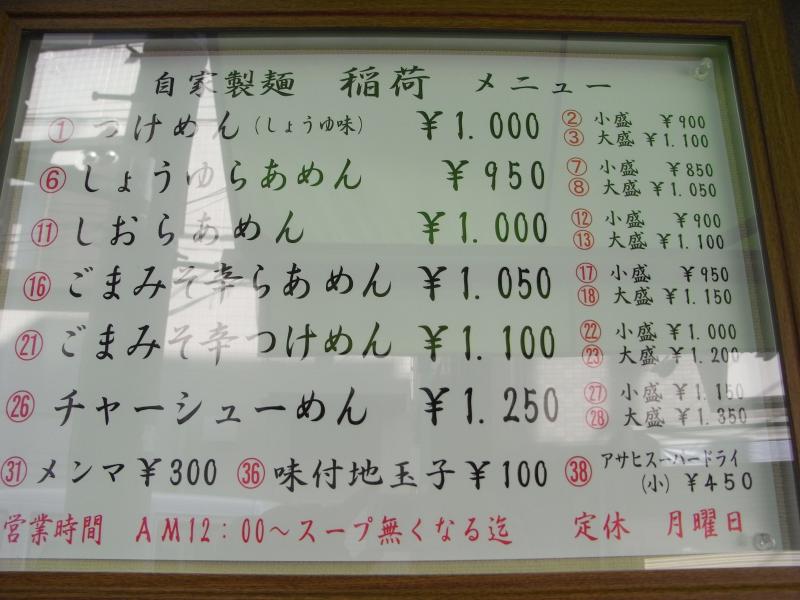 自家製麺 稲荷 メニュー
① つけめん (しょうゆ味) ¥1.000 ② 小盛 ¥900
③ 大盛 ¥1.100
⑥ しょうゆらあめん ¥950 ⑦ 小盛 ¥850
⑧ 大盛 ¥1.050
⑪ しおらあめん ¥1.000 ⑫ 小盛 ¥900
⑬ 大盛 ¥1.100
⑯ ごまみそ辛らあめん ¥1.050 ⑰ 小盛 ¥950
⑱ 大盛 ¥1.150
㉑ ごまみそ辛つけめん ¥1.100 ㉒ 小盛 ¥1.000
㉓ 大盛 ¥1.200
㉖ チャーシューめん ¥1.250 ㉗ 小盛 ¥1.150
㉘ 大盛 ¥1.350
㉛ メンマ ¥300 ㊱ 味付地玉子 ¥100 ㊳ アサヒスーパードライ
(小) ¥450
営業時間 AM12:00〜スープ無くなる迄 定休 月曜日